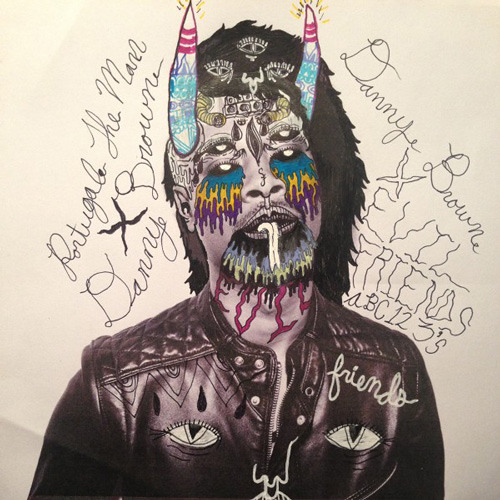 Portugal. The Man
X
Danny Browne
Danny Browne
X
EVIL
FRIENDS
ABC123's
EVIL
friends